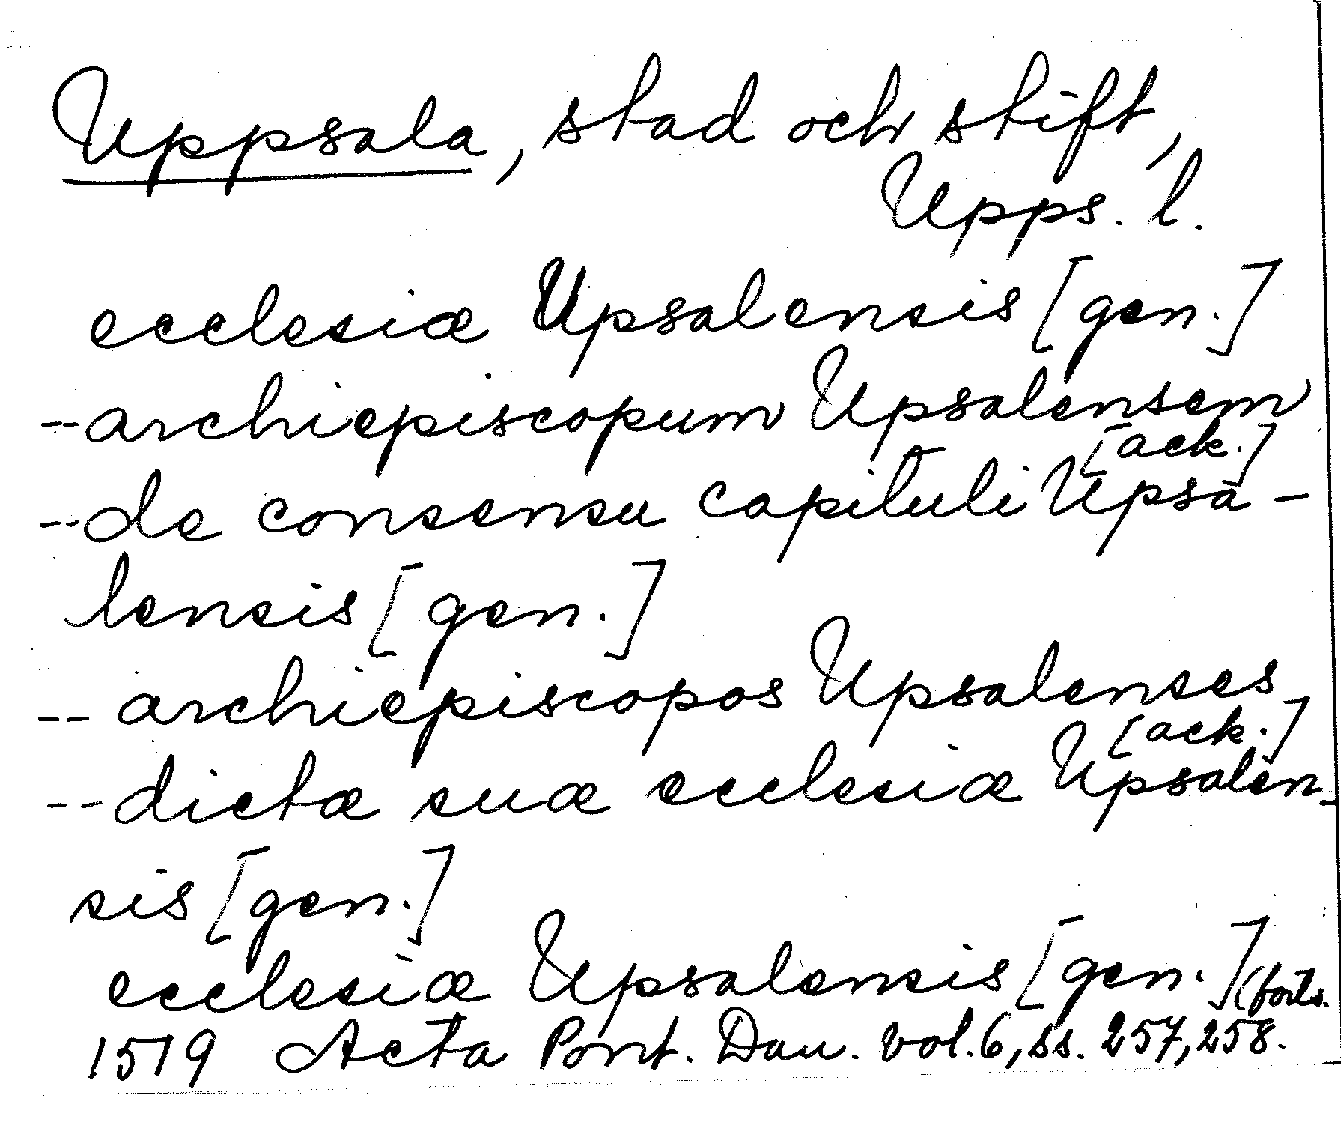 Uppsala, stad och stift,
Upps. l.
ecclesiæ Upsalensis [gen.]
-- archiepiscopum Upsalensem
[ack.]
-- de consensu capituli Upsa-
lensis [gen.]
-- archiepiscopos Upsalenses
[ack.]
-- dictæ suæ ecclesiæ Upsalen-
sis [gen.]
ecclesiæ Upsalensis [gen.] (forts.
1519 Acta Pont. Dan. vol. 6, ss. 257, 258.